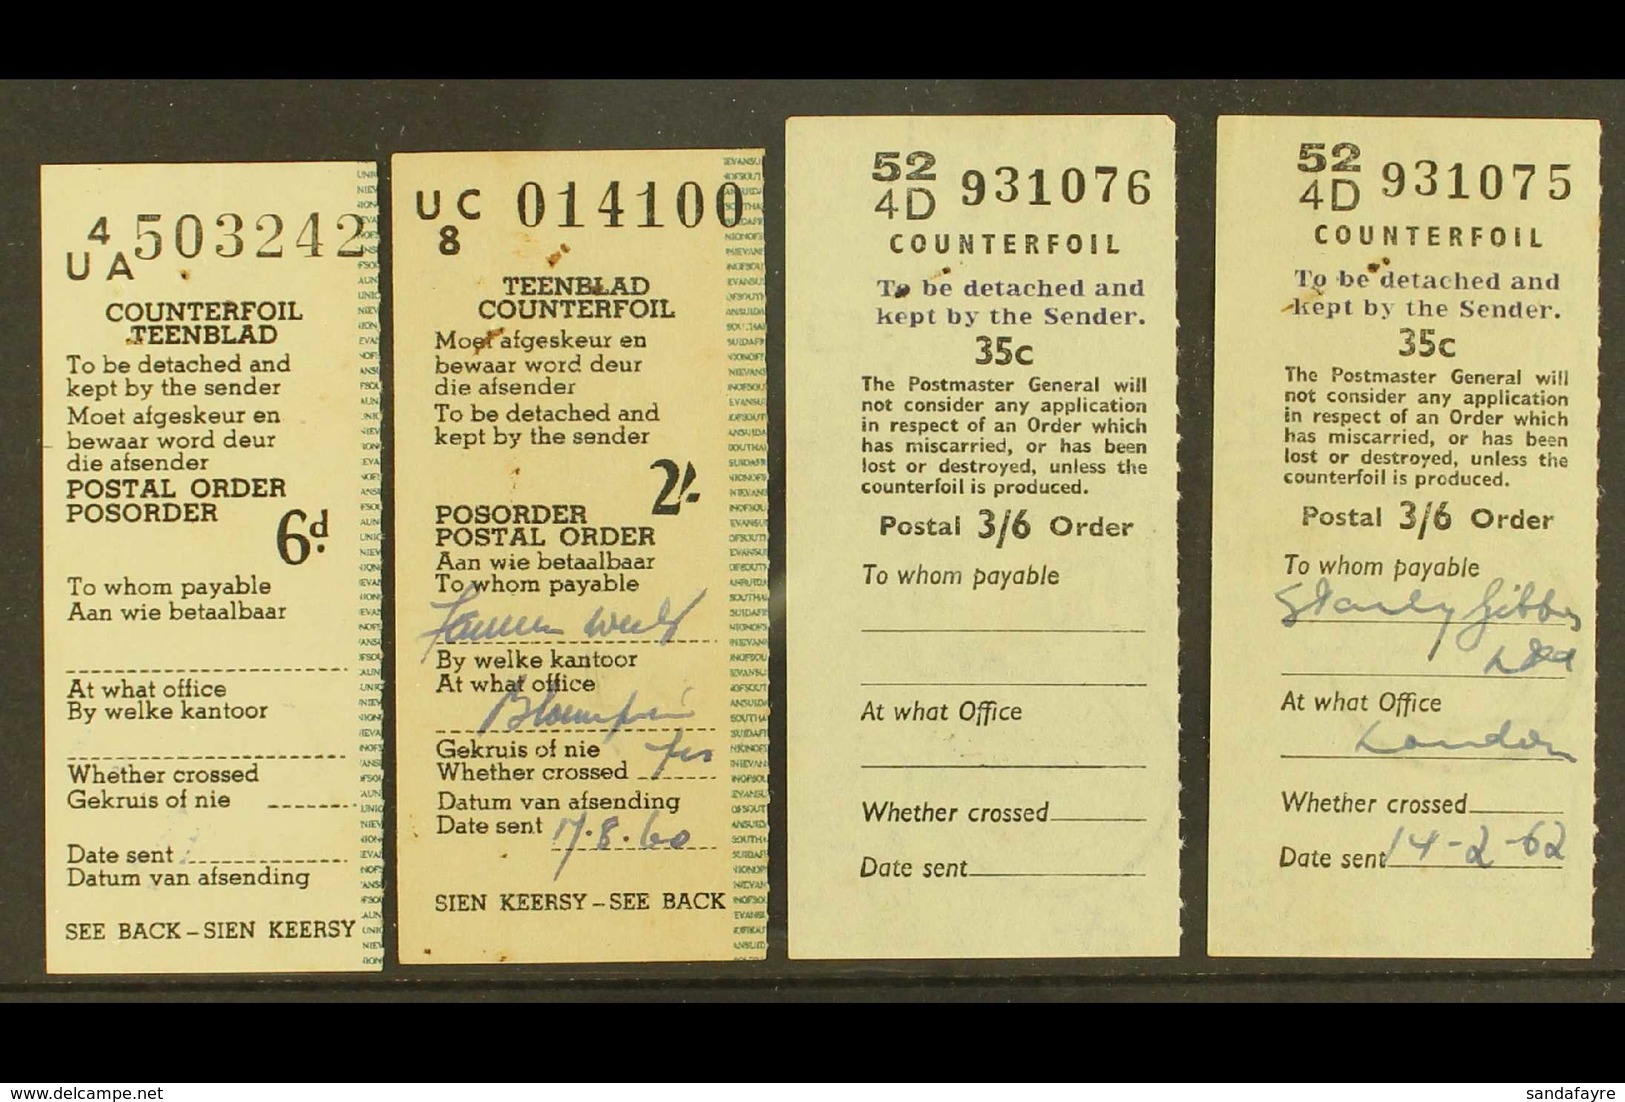 4
UA 503242
COUNTERFOIL
TEENBLAD
To be detached and
kept by the sender
Moet afgeskeur en
bewaar word deur
die afsender
POSTAL ORDER
POSORDER
6d.
To whom payable
Aan wie betaalbaar
At what office
By welke kantoor
Whether crossed
Gekruis of nie
Date sent
Datum van afsending
SEE BACK – SIEN KEERSY
UC 014100
8
TEENBLAD
COUNTERFOIL
Moet afgeskeur en
bewaar word deur
die afsender
To be detached and
kept by the sender
2/-
POSORDER
POSTAL ORDER
Aan wie betaalbaar
To whom payable
By welke kantoor
At what office
Gekruis of nie
Whether crossed
Datum van afsending
Date sent 17.8.60
SIEN KEERSY – SEE BACK
52
4D 931076
COUNTERFOIL
To be detached and
kept by the Sender.
35c
The Postmaster General will
not consider any application
in respect of an Order which
has miscarried, or has been
lost or destroyed, unless the
counterfoil is produced.
Postal 3/6 Order
To whom payable
At what Office
Whether crossed
Date sent
52
4D 931075
COUNTERFOIL
To be detached and
kept by the Sender.
35c
The Postmaster General will
not consider any application
in respect of an Order which
has miscarried, or has been
lost or destroyed, unless the
counterfoil is produced.
Postal 3/6 Order
To whom payable
Stanley Gibbons
Ltd
At what Office
London
Whether crossed
Date sent 14-2-62
delcampe.net
sandafayre